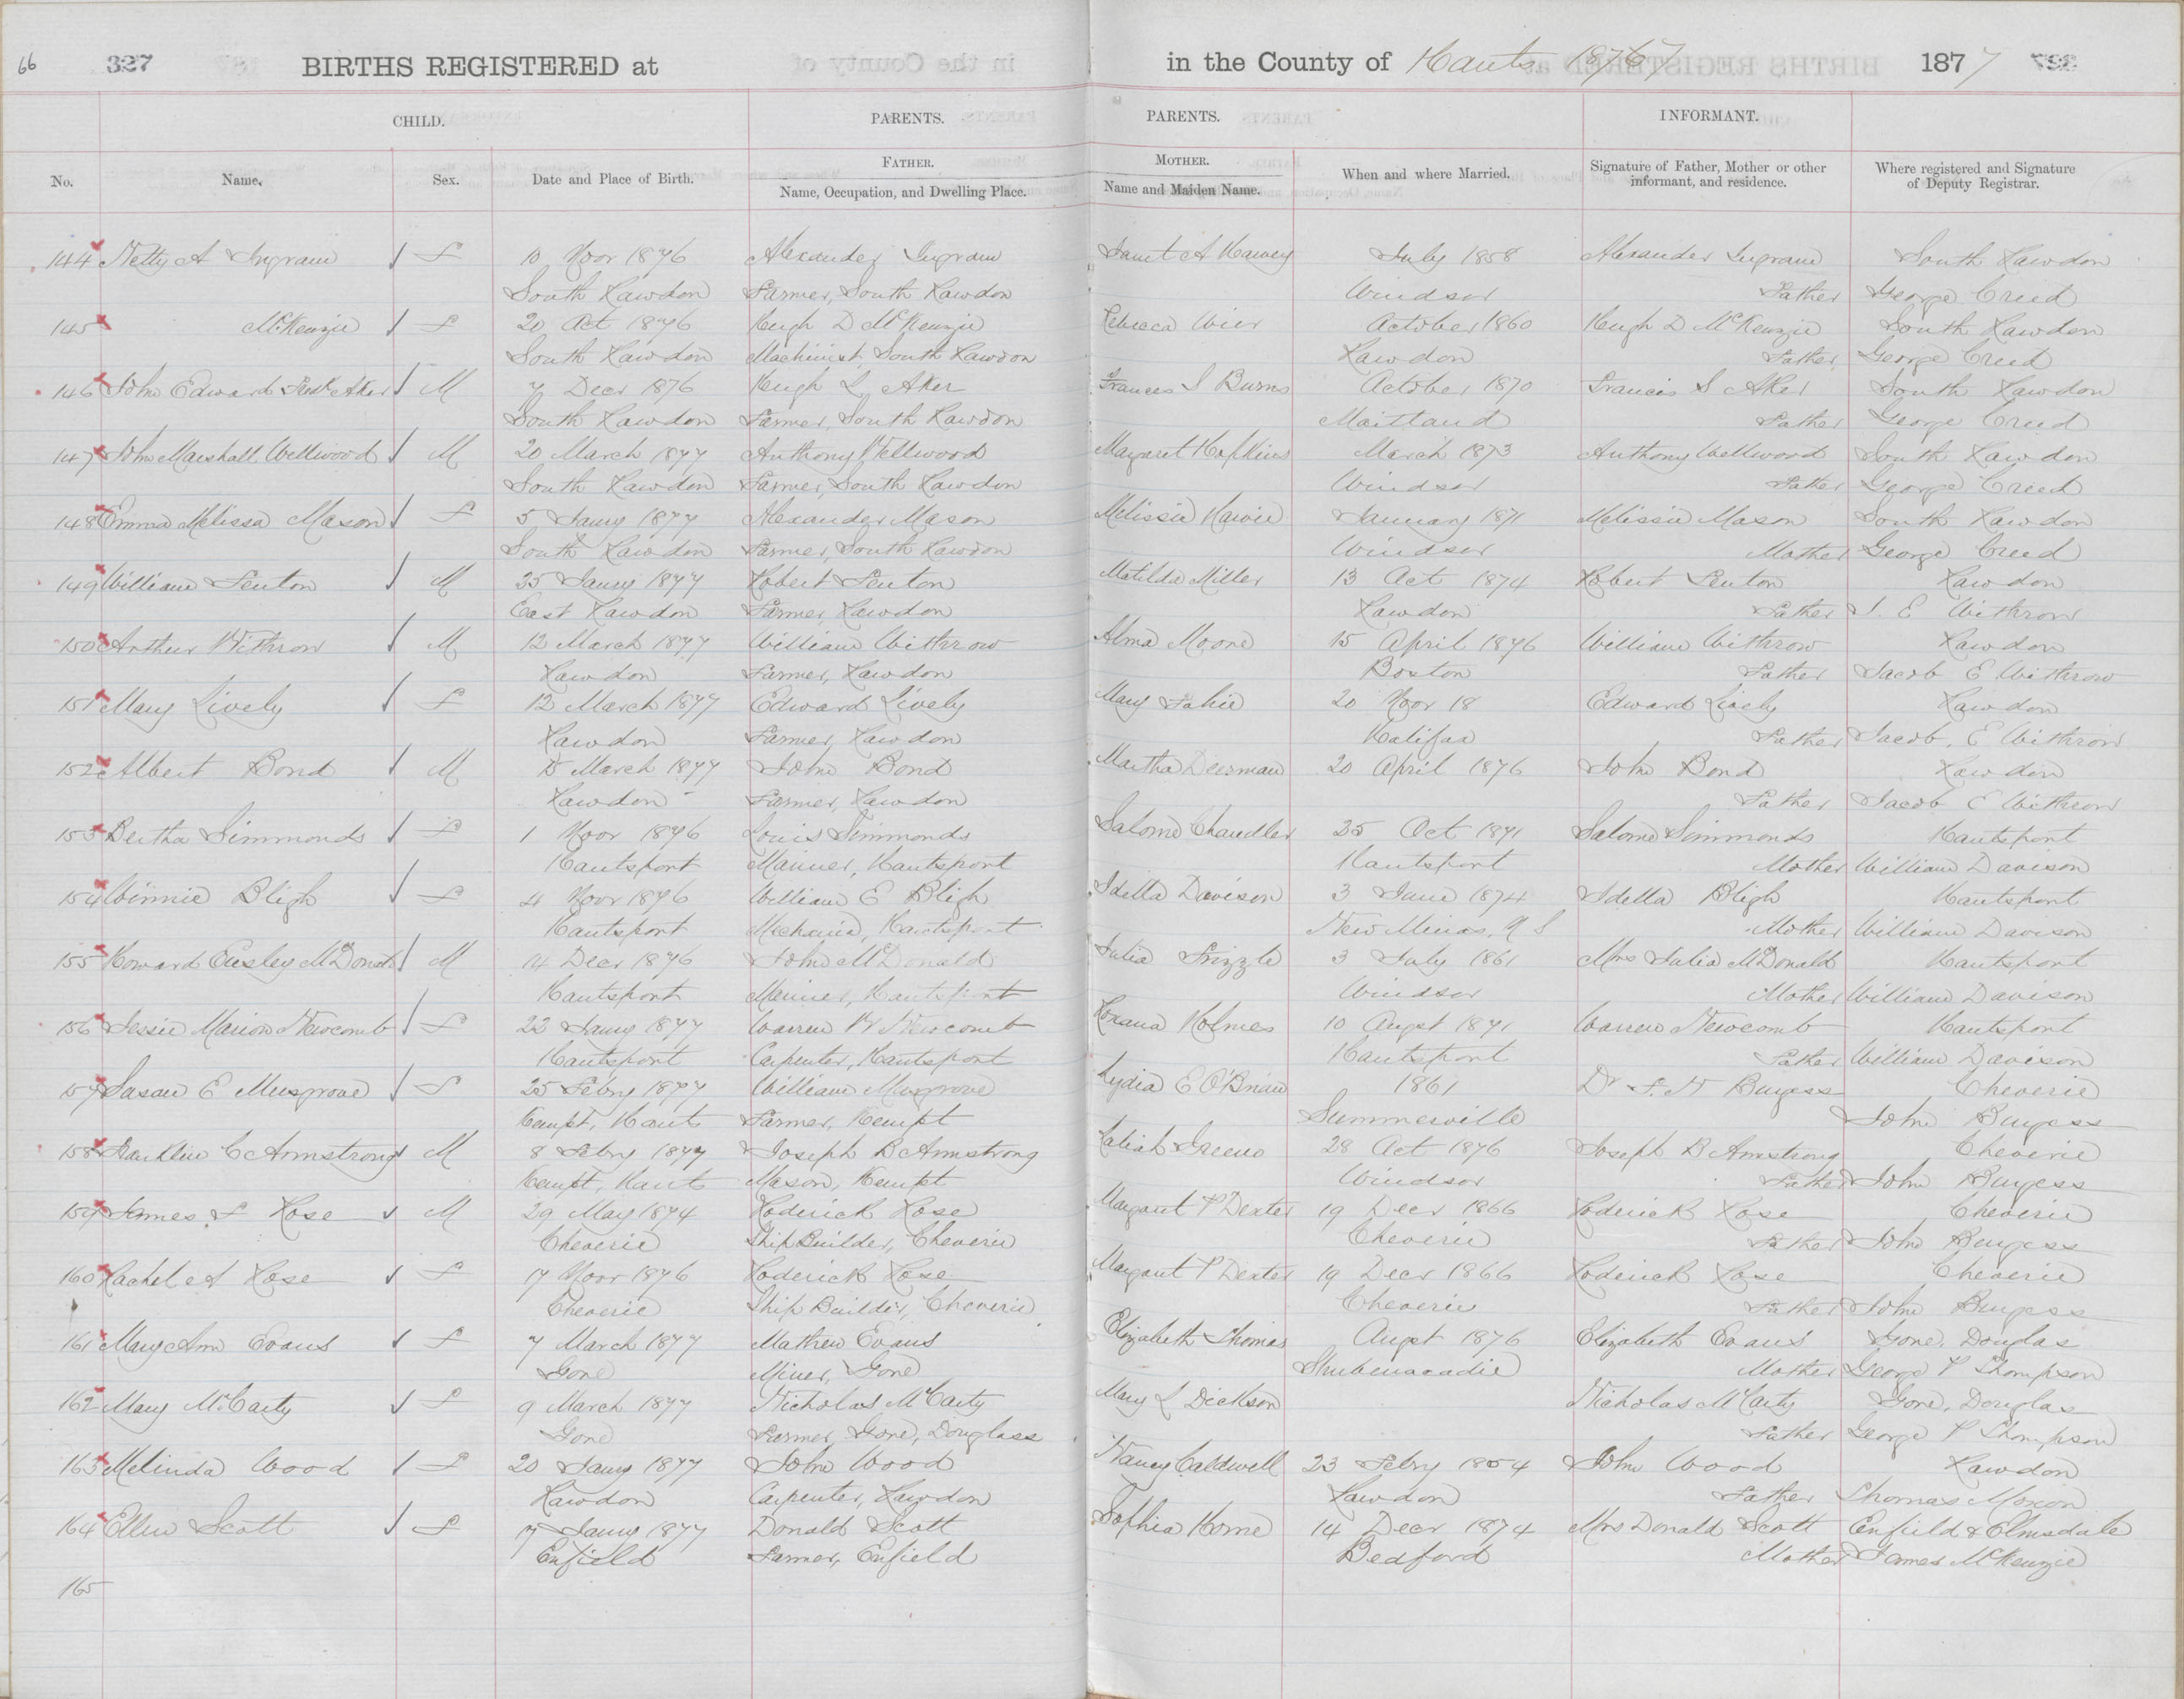 66 327 BIRTHS REGISTERED at in the County of Hants 1876/7 1877 327
CHILD. PARENTS. PARENTS. INFORMANT.
FATHER. MOTHER.
No. Name. Sex. Date and Place of Birth. Name, Occupation, and Dwelling Place. Name and Maiden Name. When and where Married. Signature of Father, Mother or other informant, and residence. Where registered and Signature of Deputy Registrar.
144 Netty A Ingram F 10 Novr 1876 Alexander Ingram Janet A Harvey July 1858 Alexander Ingram South Rawdon
South Rawdon Farmer, South Rawdon Windsor Father George Creed
145 McKenzie F 20 Oct 1876 Hugh D McKenzie Rebecca Wier October 1860 Hugh D McKenzie South Rawdon
South Rawdon Machinist, South Rawdon Rawdon Father, George Creed
146 John Edward Aker M 7 Decr 1876 Hugh L Aker Frances S Burns October 1870 Francis S Aker South Rawdon
South Rawdon Farmer, South Rawdon Maitland Father George Creed
147 John Marshall Wellwood M 20 March 1877 Anthony Wellwood Margaret Hopkins March 1873 Anthony Wellwood South Rawdon
South Rawdon Farmer, South Rawdon Windsor Father George Creed
148 Emma Melissa Mason F 5 Jany 1877 Alexander Mason Melissia Harvie January 1871 Melissia Mason South Rawdon
South Rawdon Farmer, South Rawdon Windsor Mother George Creed
149 William Fenton M 25 Jany 1877 Robert Fenton Matilda Miller 13 Oct 1874 Robert Fenton Rawdon
East Rawdon Farmer, Rawdon Rawdon Father J. E Withrow
150 Arthur Withrow M 12 March 1877 William Withrow Alma Moore 15 April 1876 William Withrow Rawdon
Rawdon Farmer, Rawdon Boston Father Jacob E Withrow
151 Mary Lively F 12 March 1877 Edward Lively Mary Fahie 20 Novr 18 Edward Lively Rawdon
Rawdon Farmer, Rawdon Halifax Father Jacob. E Withrow
152 Albert Bond M 15 March 1877 John Bond Martha Deerman 20 April 1876 John Bond Rawdon
Rawdon Farmer, Rawdon Father Jacob E Withrow
153 Bertha Simmonds F 1 Novr 1876 Louis Simmonds Salome Chandler 25 Oct 1871 Salome Simmonds Hantsport
Hantsport Mariner, Hantsport Hantsport Mother William Davison
154 Winnie Bligh F 4 Novr 1876 William E Bligh Idella Davison 3 June 1874 Idella Bligh Hantsport
Hantsport Mechanic, Hantsport New Minas, N S Mother William Davison
155 Howard Ensley McDonald M 14 Decr 1876 John McDonald Julia Frizzle 3 July 1861 Mrs Julia McDonald Hantsport
Hantsport Mariner, Hantsport Windsor Mother William Davison
156 Jessie Marion Newcomb F 22 Jany 1877 Warren W Newcomb Roxana Holmes 10 Augst 1871 Warren Newcomb Hantsport
Hantsport Carpenter, Hantsport Hantsport Father William Davison
157 Susan E Musgrove F 25 Febry 1877 William Musgrove Lydia E O'Brian 1861 Dr F. W Burgess Cheverie
Kempt, Hants Farmer, Kempt Summerville John Burgess
158 Franklin C Armstrong M 8 Febry 1877 Joseph B Armstrong Greeno 28 Oct 1876 Joseph B Armstrong Cheverie
Kempt, Hants Mason, Kempt Windsor Father John Burgess
159 James F Rose M 29 May 1874 Roderick Rose Margaret P Dexter 19 Decr 1866 Roderick Rose Cheverie
Cheverie Ship Builder, Cheverie Cheverie Father John Burgess
160 Rachel A Rose F 17 Novr 1876 Roderick Rose Margaret P Dexter 19 Decr 1866 Roderick Rose Cheverie
Cheverie Ship Builder, Cheverie Cheverie Father John Burgess
161 Mary Ann Evans F 7 March 1877 Mathew Evans Elizabeth Thomas Augst 1876 Elizabeth Evans Gore, Douglas
Gore Miner, Gore Shubenacadie Mother George P Thompson
162 Mary McCarty F 9 March 1877 Nicholas McCarty Mary L Dickson Nicholas McCarty Gore, Douglas
Gore Farmer, Gore, Douglass Father George P Thompson
163 Melinda Wood F 20 Jany 1877 John Wood Nancy Caldwell 23 Febry 1854 John Wood Rawdon
Rawdon Carpenter, Rawdon Rawdon Father Thomas Moxon
164 Ellen Scott F 17 Jany 1877 Donald Scott Sophia Horne 14 Decr 1874 Mrs Donald Scott Enfield & Elmsdale
Enfield Farmer, Enfield Bedford Mother James McKenzie
165